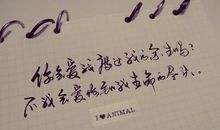 你会爱我超过我的余生吗?
不我会爱你到我生命的尽头..
I ♥ ANIMAL